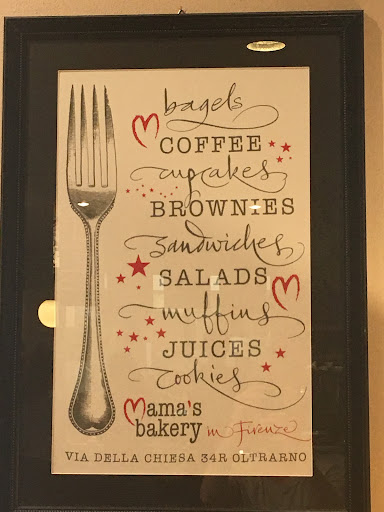 bagels
COFFEE
cupcakes
BROWNIES
sandwiches
SALADS
muffins
JUICES
cookies
Mama's
bakery in Firenze
VIA DELLA CHIESA 34R OLTRARNO